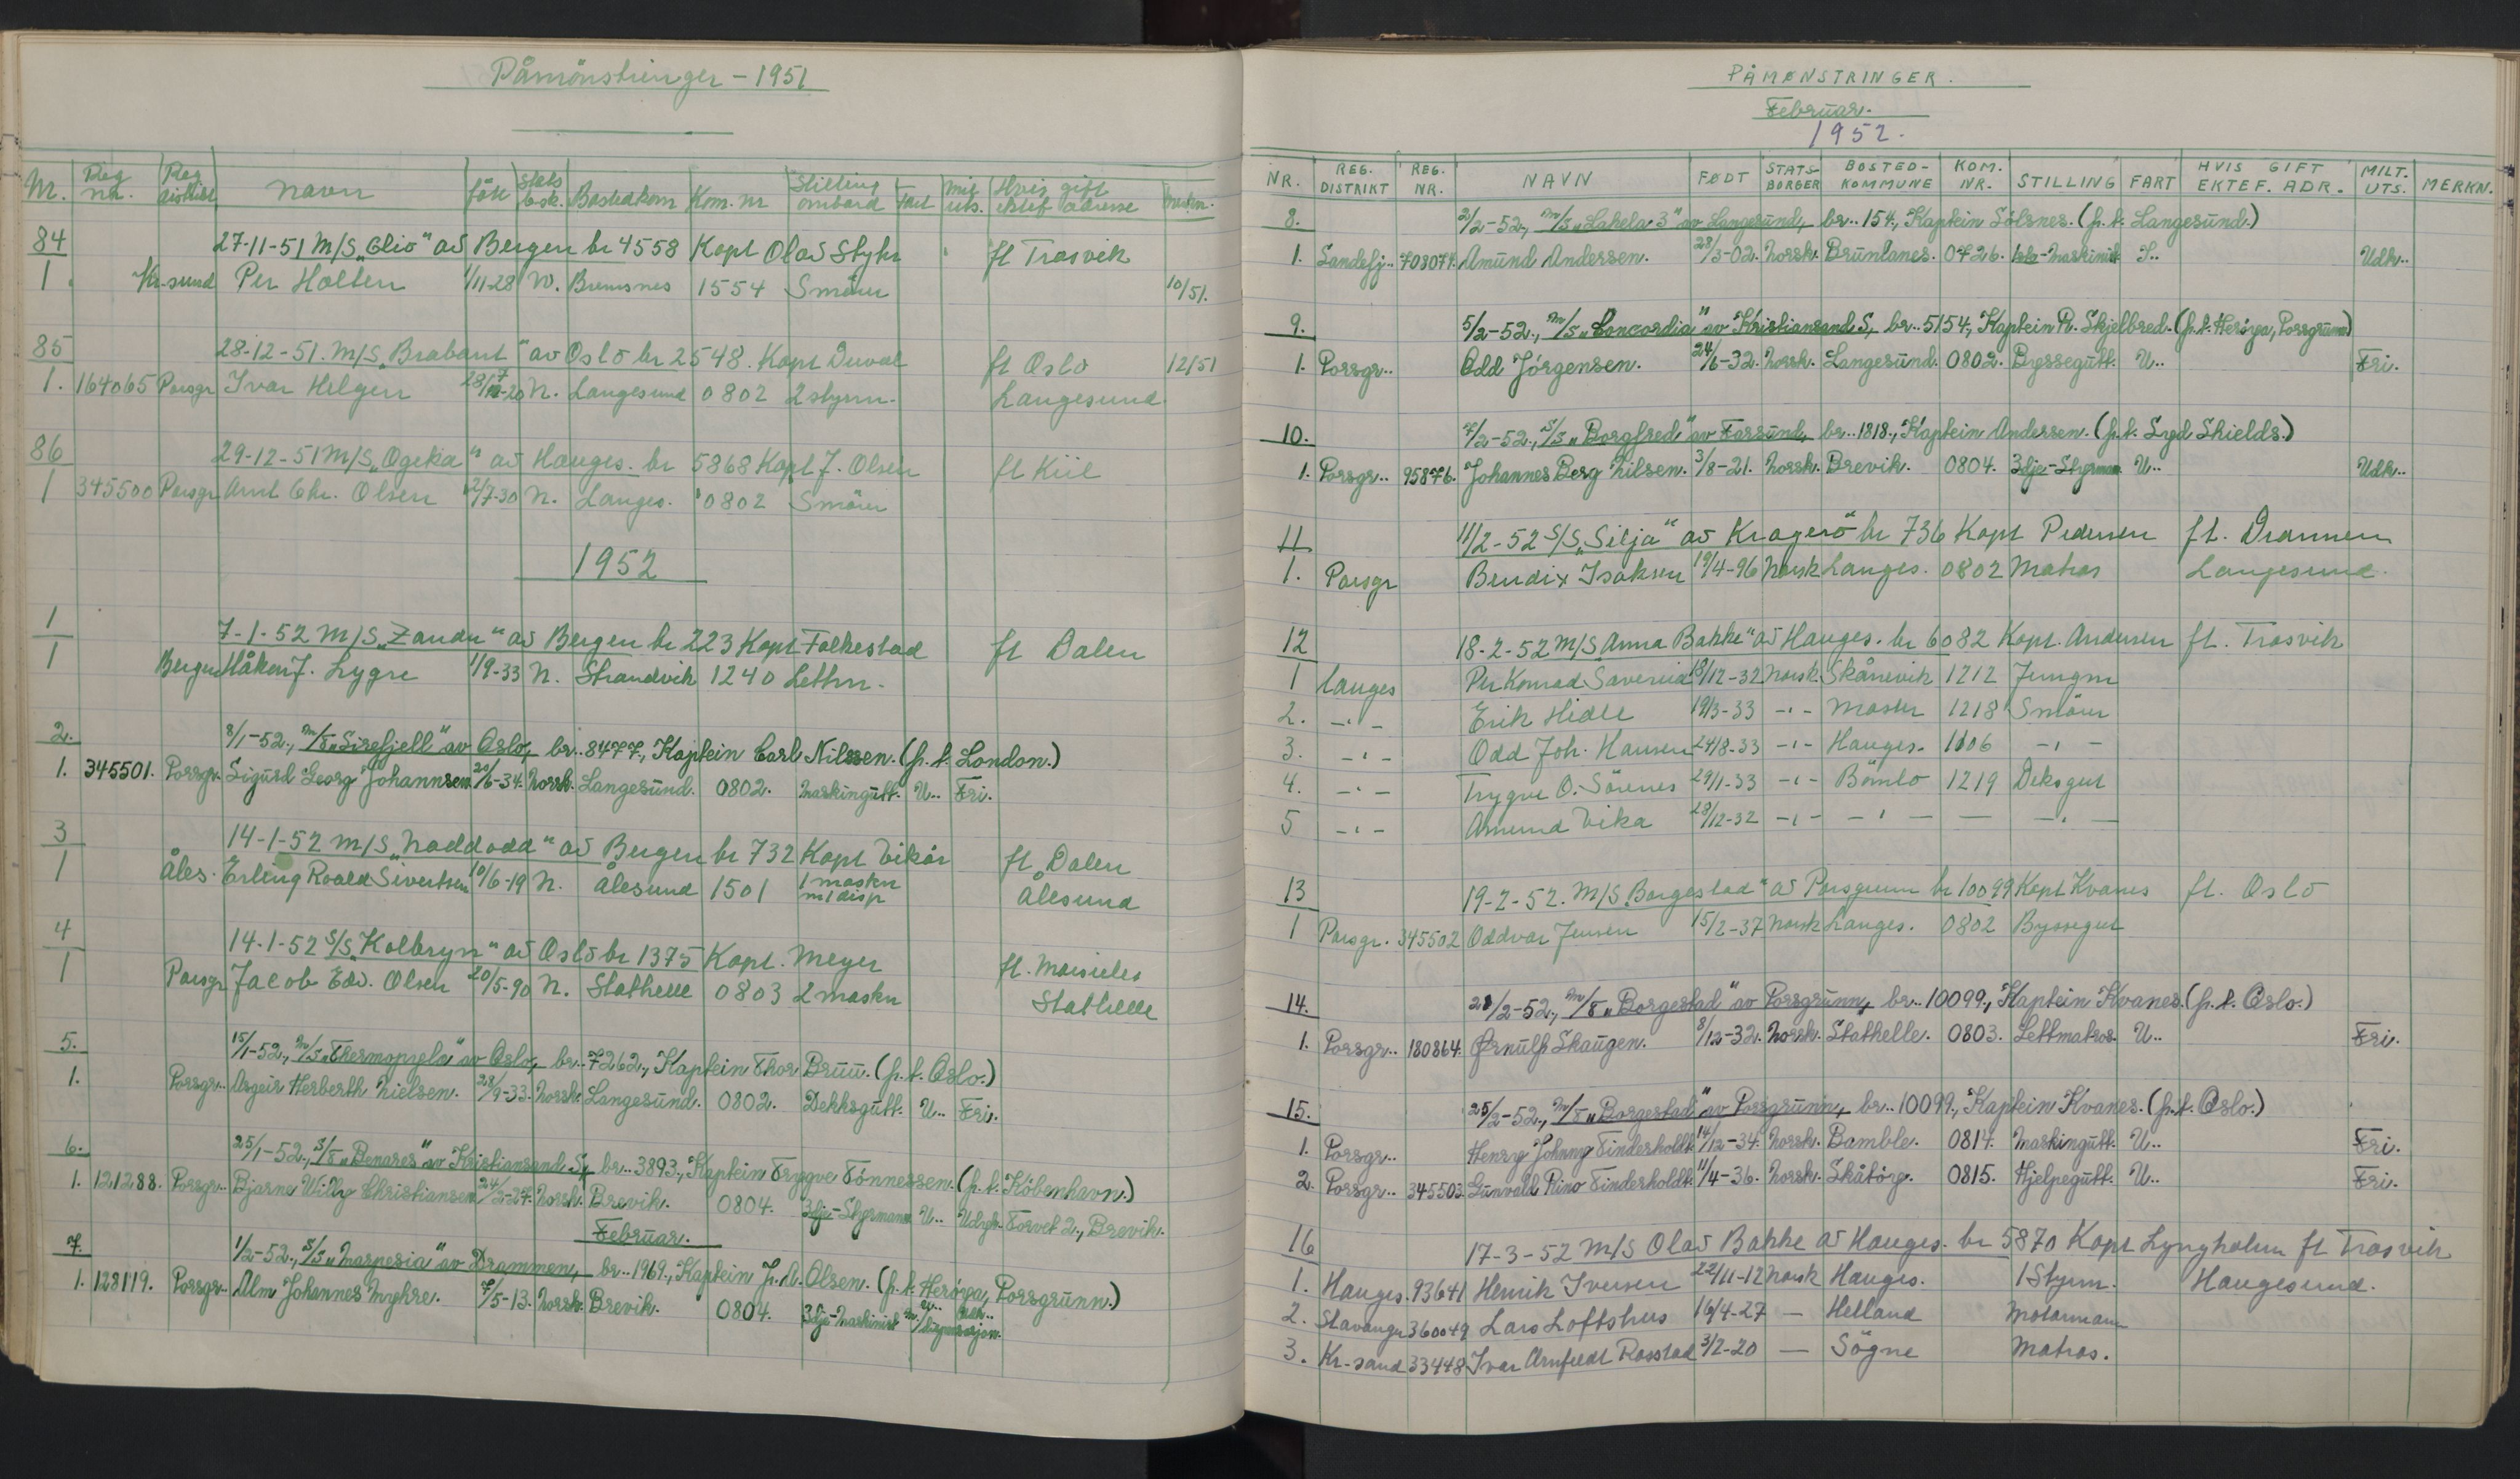 Påmönstringer - 1951
Nr. Reg nr. Reg distrikt navn föd Stats b.sk. Bostedkom Kom. nr Stilling ombord Fart mil uts. Hvis gift ektef adresse merkn.
84 27-11-51 M/S „Clio" av Bergen br 4558 Kapt Olav Styhr ft Trosvik
1. Kr-sund Per Holten 1/11-28 N. Bremsnes 1554 Smörer 10/51.
85 28-12-51. M/S „Brabant" av Oslo br 2548. Kapt Duval ft Oslo 12/51
1. 164065 Porsgr Ivar Helgen 28/7-20 N. Langesund 0802 2 styrm. Langesund
86 29-12-51 M/S „Ogeka" av Hauges. br 5868 Kapt J. Olsen ft Kiil
1 345500 Porsgr Arnt Chr. Olsen 12/7-30 N. Langes. 0802 Smörer
1952
1 7-1-52 M/S „Zanda" av Bergen br 223 Kapt Folkestad ft Dalen
1 Bergen Håkon J. Lygre 1/9-33 N. Strandvik 1240 Lettm.
2. 8/1-52., M/S „Sirefjell" av Oslo, br.. 8477., Kaptein Carl Nilssen. (p.t. London.)
1. 345501. Porsgr. Sigurd Georg Johannsen. 20/6-34. Norsk. Langesund. 0802. Maskingutt. U.. Fri.
3 14-1-52 M/S „Noddodd" av Bergen br 732 Kapt Vikör ft Dalen
1 Åles. Erling Roald Sivertsen 10/6-19 N. Ålesund 1501 1 maskn m/disp Ålesund
4 14-1-52 S/S „Kolbryn" av Oslo br 1375 Kapt. Meyer ft. Marsieles
1 Porsgr Jacob Edv. Olsen 20/5-90 N. Stathelle 0803 2 maskn Stathelle
5. 15/1-52., M/S „Thermopylæ" av Oslo, br.. 7262., Kaptein Thor Bruu. (p.t. Oslo.)
1. Porsgr.. Asgeir Herberth Nielsen. 28/9-33. Norsk. Langesund. 0802. Dekksgutt. U.. Fri.
6. 25/1-52., S/S „Benares" av Kristiansand S, br.. 3893., Kaptein Trygve Tönnessen. (p.t. Köbenhavn.)
1. 121288. Porsgr.. Bjarne Willy Christiansen 24/3-27. Norsk. Brevik. 0804. 3dje-Styrmann U.. Udyk. Torvet 2., Brevik.
Februar.
7. 1/2-52., S/S „Marpesia" av Drammen, br.. 1969., Kaptein J. A. Olsen. (p.t. Heröya, Porsgrunn.)
1. 128119. Porsgr.. Alm Johannes Myhre. 7/5-13. Norsk. Brevik. 0804. 3dje-Maskinist U..
PÅMØNSTRINGER.
Februar.
1952.
NR. REG. DISTRIKT REG. NR. NAVN FØDT STATS-BORGER BOSTED-KOMMUNE KOM. NR. STILLING FART HVIS GIFT EKTEF. ADR. MILT. UTS. MERKN.
8. 2/2-52., M/S „Lakela 3" av Langesund, br.. 154., Kaptein Sölsnes. (p.t. Langesund.)
1. Sandefj.. 703074. Amund Andersen. 28/3-02. Norsk. Brunlanes. 0726. Maskinist I.. Udk..
9. 5/2-52., M/S „Concordia" av Kristiansand S, br.. 5154., Kaptein R. Skjelbred. (p.t. Heröya, Porsgrunn)
1. Porsgr.. Odd Jörgensen. 24/6-32. Norsk. Langesund. 0802. Byssegutt. U.. Fri.
10. 7/2-52., S/S „Borgfred" av Farsund, br.. 1818., Kaptein Andersen. (p.t. Syd Shields.)
1. Porsgr.. 95876. Johannes Berg Nilsen. 3/8-21. Norsk. Brevik. 0804. 3dje-Styrmann U.. Udk..
11 11/2-52 S/S „Silja" av Kragerö br 736 Kapt Pedersen ft. Drammen
1. Porsgr Bendix Isaksen 19/4-96 Norsk Langes. 0802 Matros Langesund.
12 18-2-52 M/S Anna Bakke" av Hauges. br 6082 Kapt. Andersen ft. Trosvik
1 Langes Per Konrad Sævereid 18/12-32 Norsk. Skånevik 1212 Jungm
2. -"- Erik Hidle 19/3-33 -"- Moster 1218 Smörer
3. -"- Odd Joh. Hansen 24/8-33 -"- Hauges. 1106 -"-
4. -"- Trygve O. Sörenes 29/1-33 -"- Bömlo 1219 Deksgut
5 -"- Amund Vika 28/12-32 -"- -"- — -"-
13 19-2-52. M/S „Borgestad" av Porsgrunn br 10099 Kapt Kvanes ft. Oslo
1 Porsgr. 345502 Oddvar Jensen 15/2-37 Norsk Langes. 0802 Byssegut
14. 21/2-52., M/S „Borgestad" av Porsgrunn, br.. 10099., Kaptein Kvanes. (p.t. Oslo.)
1. Porsgr.. 180864. Ørnulf Skaugen. 8/12-32. Norsk. Stathelle. 0803. Lettmatros. U.. Fri.
15. 25/2-52., M/S „Borgestad" av Porsgrunn, br.. 10099., Kaptein Kvanes. (p.t. Oslo.)
1. Porsgr.. Henry Johnny Tinderholdt. 14/12-34. Norsk. Bamble. 0814. Maskingutt. U.. Fri.
2. Porsgr.. 345503. Gunvald Rino Tinderholdt. 11/4-36. Norsk. Skåtöy. 0815. Hjelpegutt. U.. Fri.
16 17-3-52 M/S Olav Bakke av Hauges. br 5870 Kapt Lyngholm ft Trosvik
1. Hauges. 93641 Henrik Iversen 22/11-12 Norsk Hauges. 1 Styrm. Haugesund.
2. Stavanger 360049 Lars Loftshus 16/4-27 — Helland Motormann
3. Kr-sand 33448 Ivar Arnfeldt Rosstad 3/2-20 — Sögne Matros.